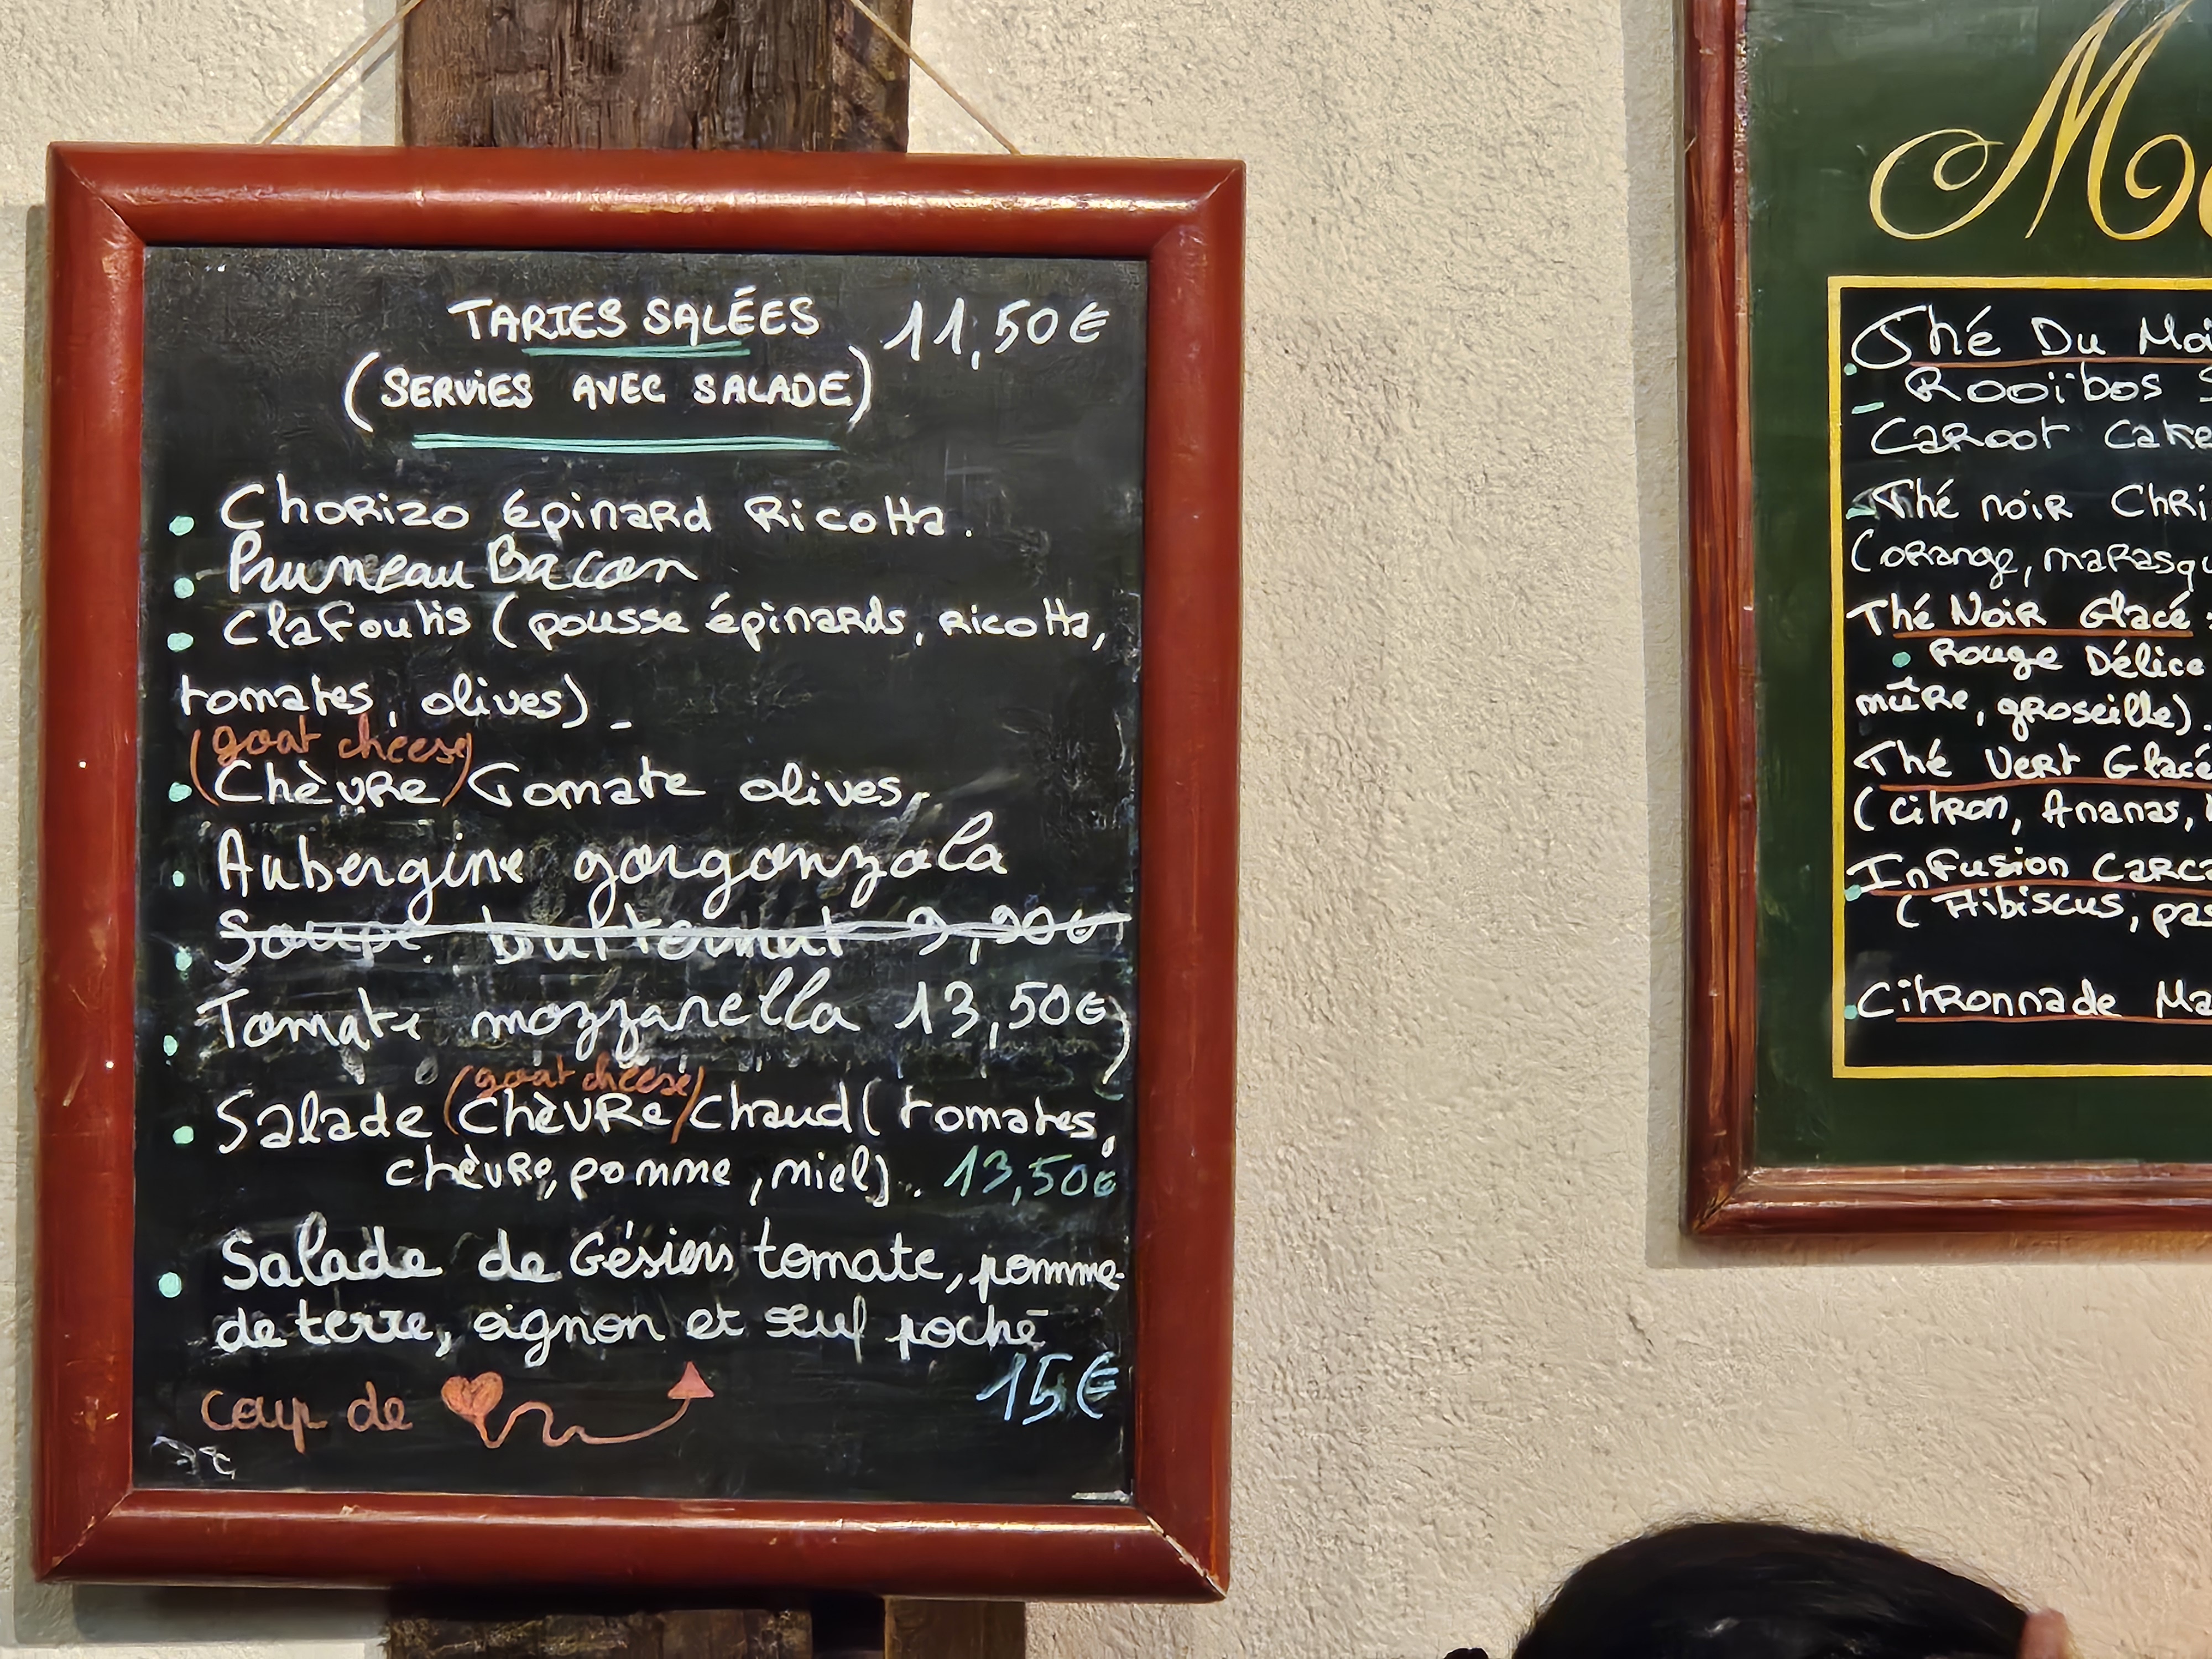 TARTES SALÉES 11,50€
(SERVIES AVEC SALADE)
• Chorizo épinard Ricotta.
• Pruneau Bacon
• Clafoutis (pousse épinards, ricotta,
tomates, olives).
(goat cheese)
• Chèvre Tomate olives,
• Aubergine gorgonzola
• Soupe butternut 9,90€
• Tomate mozzarella 13,50€
(goat cheese)
• Salade Chèvre Chaud (tomates,
chèvre, pomme, miel). 13,50€
• Salade de Gésiers tomate, pomme
de terre, oignon et œuf poché
15€
coup de
Thé Du Moi
- Rooïbos S
Caroot Cake
Thé noir Chri
(orange, marasqu
Thé Noir Glacé :
• Rouge Délice
mûre, groseille).
Thé Vert Glacé
(citron, Ananas,
Infusion Carca
(Hibiscus, pas
Citronnade Ma